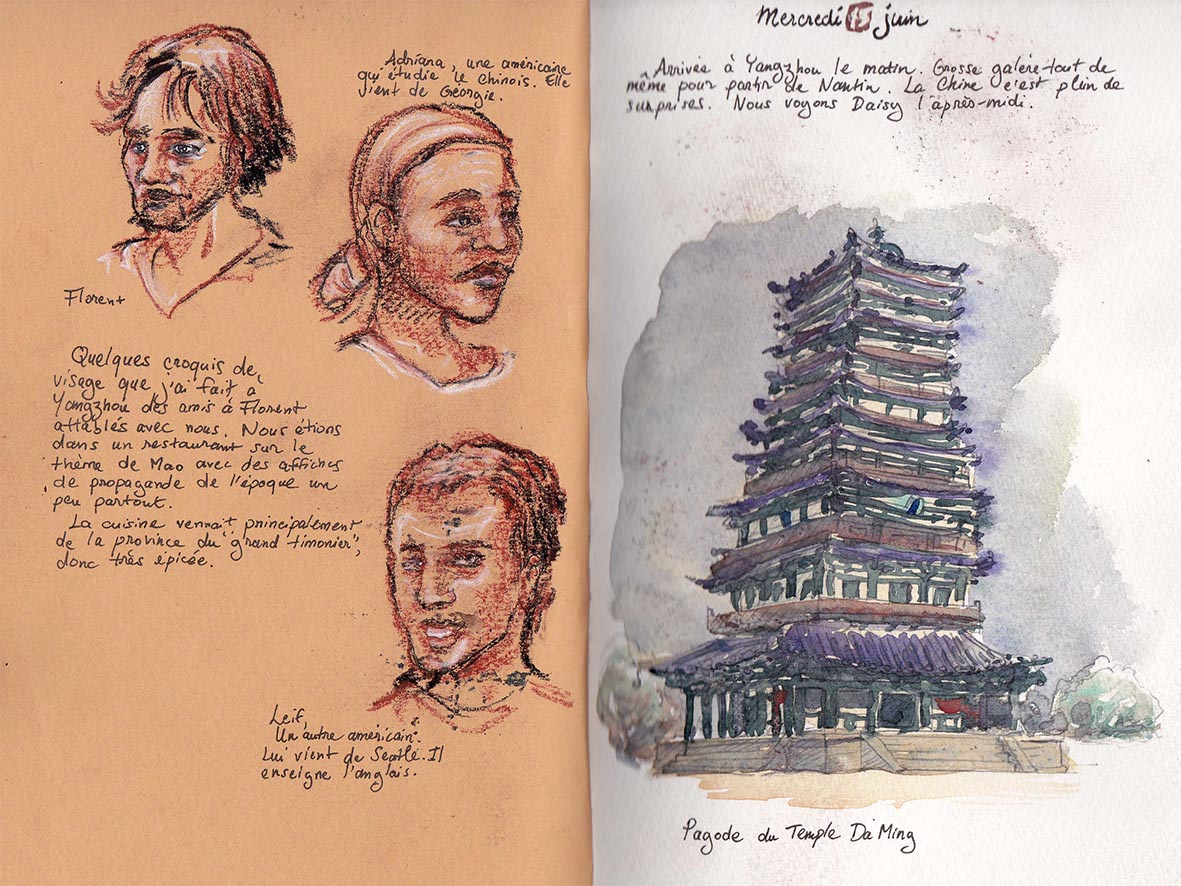 Florent
Adriana, une américaine
qu'étudie le Chinois. Elle
vient de Géorgie.
Quelques croquis de
visage que j'ai fait à
Yangzhou des amis à Florent
attablés avec nous. Nous étions
dans un restaurant sur le
thème de Mao avec des affiches
de propagande de l'époque un
peu partout.
La cuisine vennait principalement
de la province du "grand timonier",
donc très épicée.
Leif,
Un autre américain.
Lui vient de Seatlé. Il
enseigne l'anglais.
Mercredi 15 juin
Arrivée à Yangzhou le matin. Grosse galère tout de
même pour partir de Nantin. La Chine c'est plein de
surprises. Nous voyons Daisy l'après-midi.
Pagode du Temple Da Ming